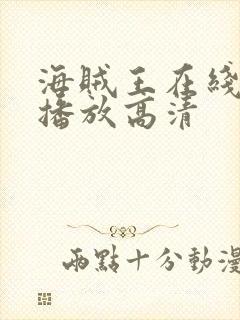 海贼王在綫
播放高清
兩點十分動漫